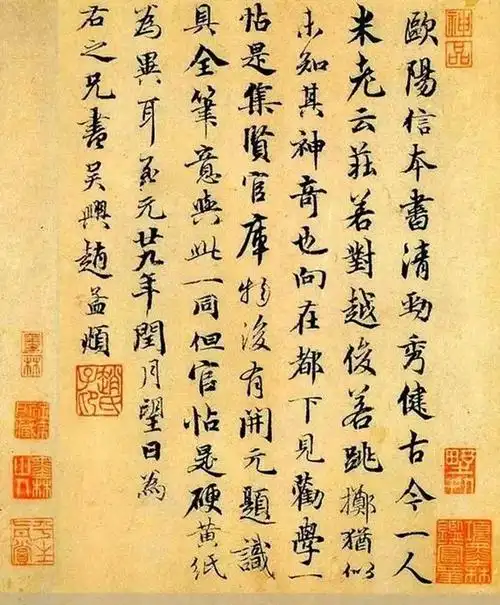 歐陽信本書清勁秀健古今一人
米老云莊若對越俊若跳擲猶似
未知其神奇也向在都下見勸學一
帖是集賢官庫物後有開元題識
具全筆意與此一同但官帖是硬黃紙
為異耳至元廿九年閏月望日為
右之兄書吳興趙孟頫
神品